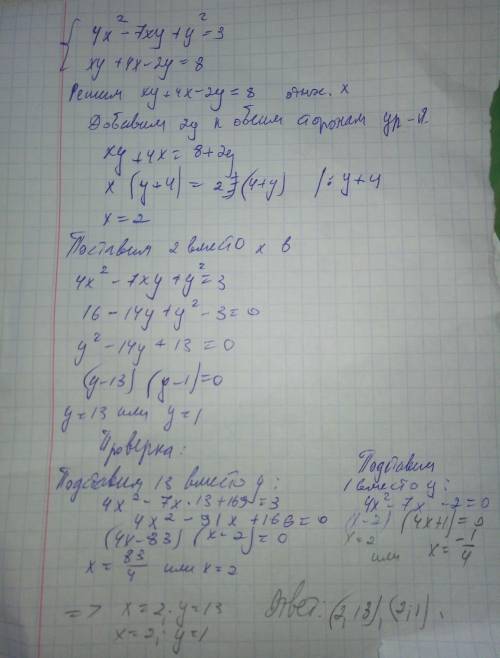 4x² - 7xy + y² = 3
xy + 4x - 2y = 8
Решим xy + 4x - 2y = 8 отн. x
Добавим 2y к обеим сторонам ур-я.
xy + 4x = 8 + 2y
x (y+4) = 2 (4+y) /: y+4
x = 2
Поставим 2 вместо x в
4x² - 7xy + y² = 3
16 - 14y + y² - 3 = 0
y² - 14y + 13 = 0
(y-13) (y-1) = 0
y = 13 или y = 1
Проверка:
Подставим 13 вместо y:
4x² - 7x · 13 + 169 = 3
4x² - 91x + 166 = 0
(4x-83) (x-2) = 0
x = 83/4 или x = 2
Подставим
1 вместо y:
4x² - 7x - 2 = 0
(x-2) (4x+1) = 0
x = 2
или x = -1/4
=> x = 2; y = 13
x = 2; y = 1
Ответ: (2,13), (2;1).